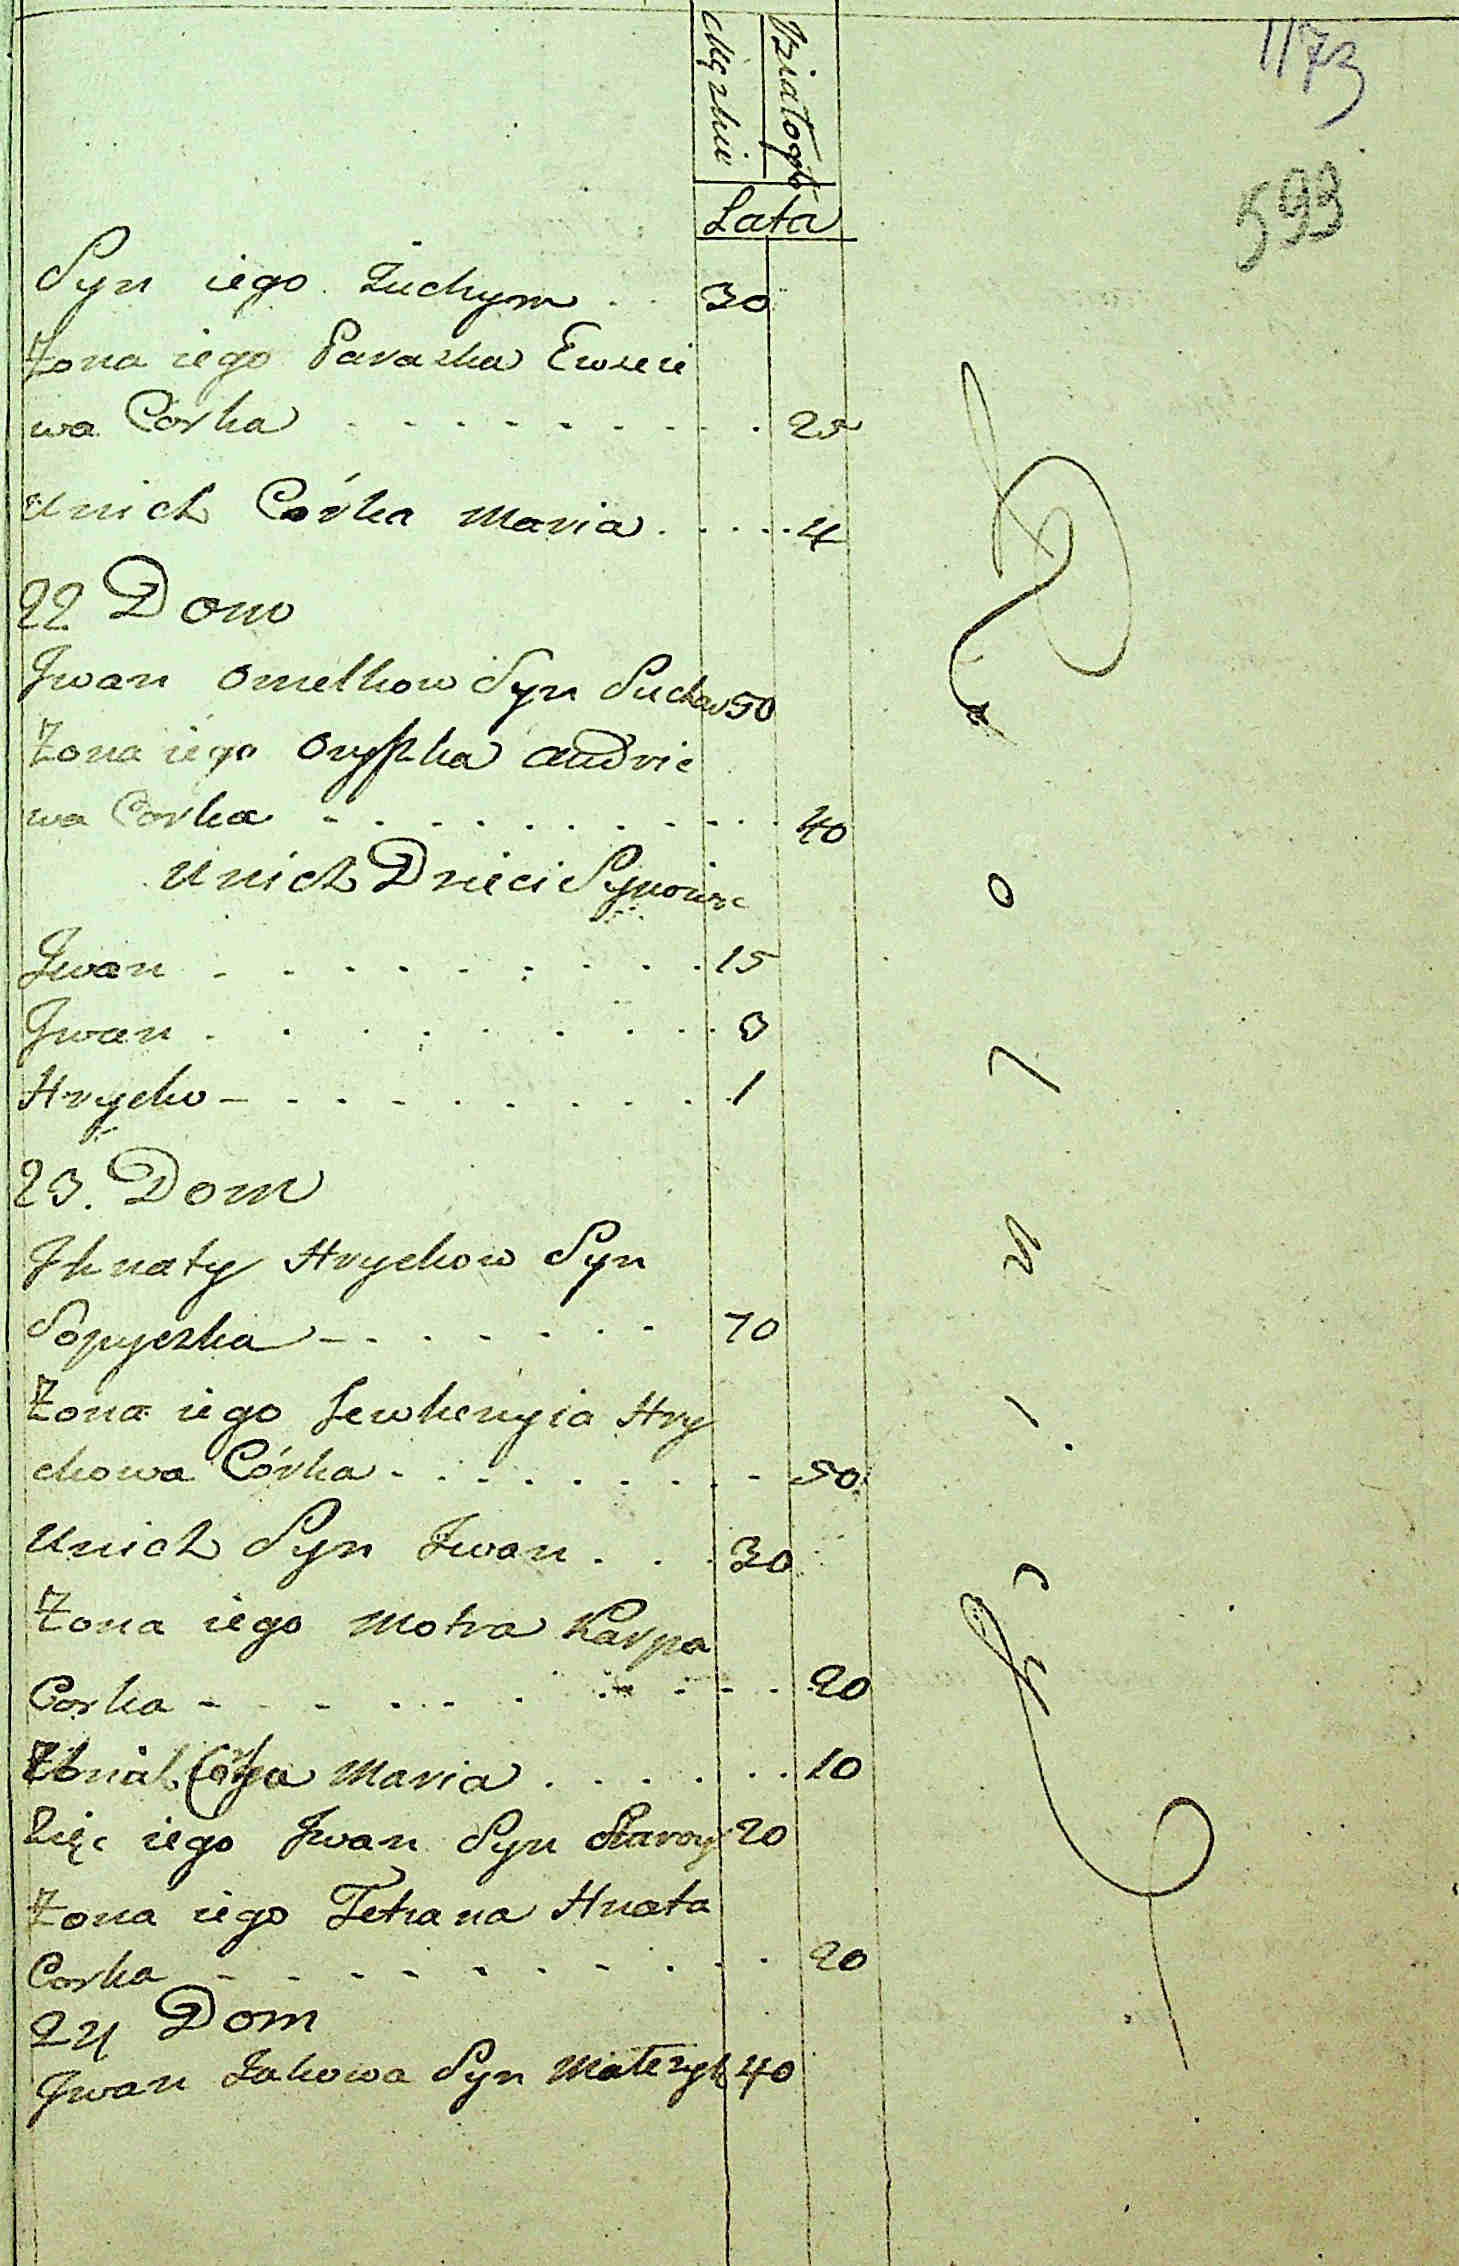 Męzkie
Białogł
Lata
1173
593
Syn iego Juchym . . 30
Żona iego Paraska Ewseie
wa Corka - - - - - - - - 25
Unich Córka Maria . . . . . 4
22 Dom
Jwan Omelkow Syn 50
Żona iego Oryszka Andrie
wa Corka - - - - - - - - - 40
Unich Dzieci Synowie
Jwan - - - - - - - - - 15
Jwan - - - - - - - - - 3
Hrycko - - - - - - - - - 1
23. Dom
Jhnaty Hryckow Syn
Sopyczka - - - - - - - 70
Żona iego Jewhenyia Hry
ckowa Córka - - - - - - - - 50
Unich Syn Jwan . . . 30
Żona iego Motra Karpa
Corka - - - - - - - - - 20
Unich Corka Maria . . . . . . 10
Zięc iego Jwan Syn 20
Żona iego Tetiana Hnata
Corka - - - - - - - - - - 20
24 Dom
Jwan Jakowa Syn 40